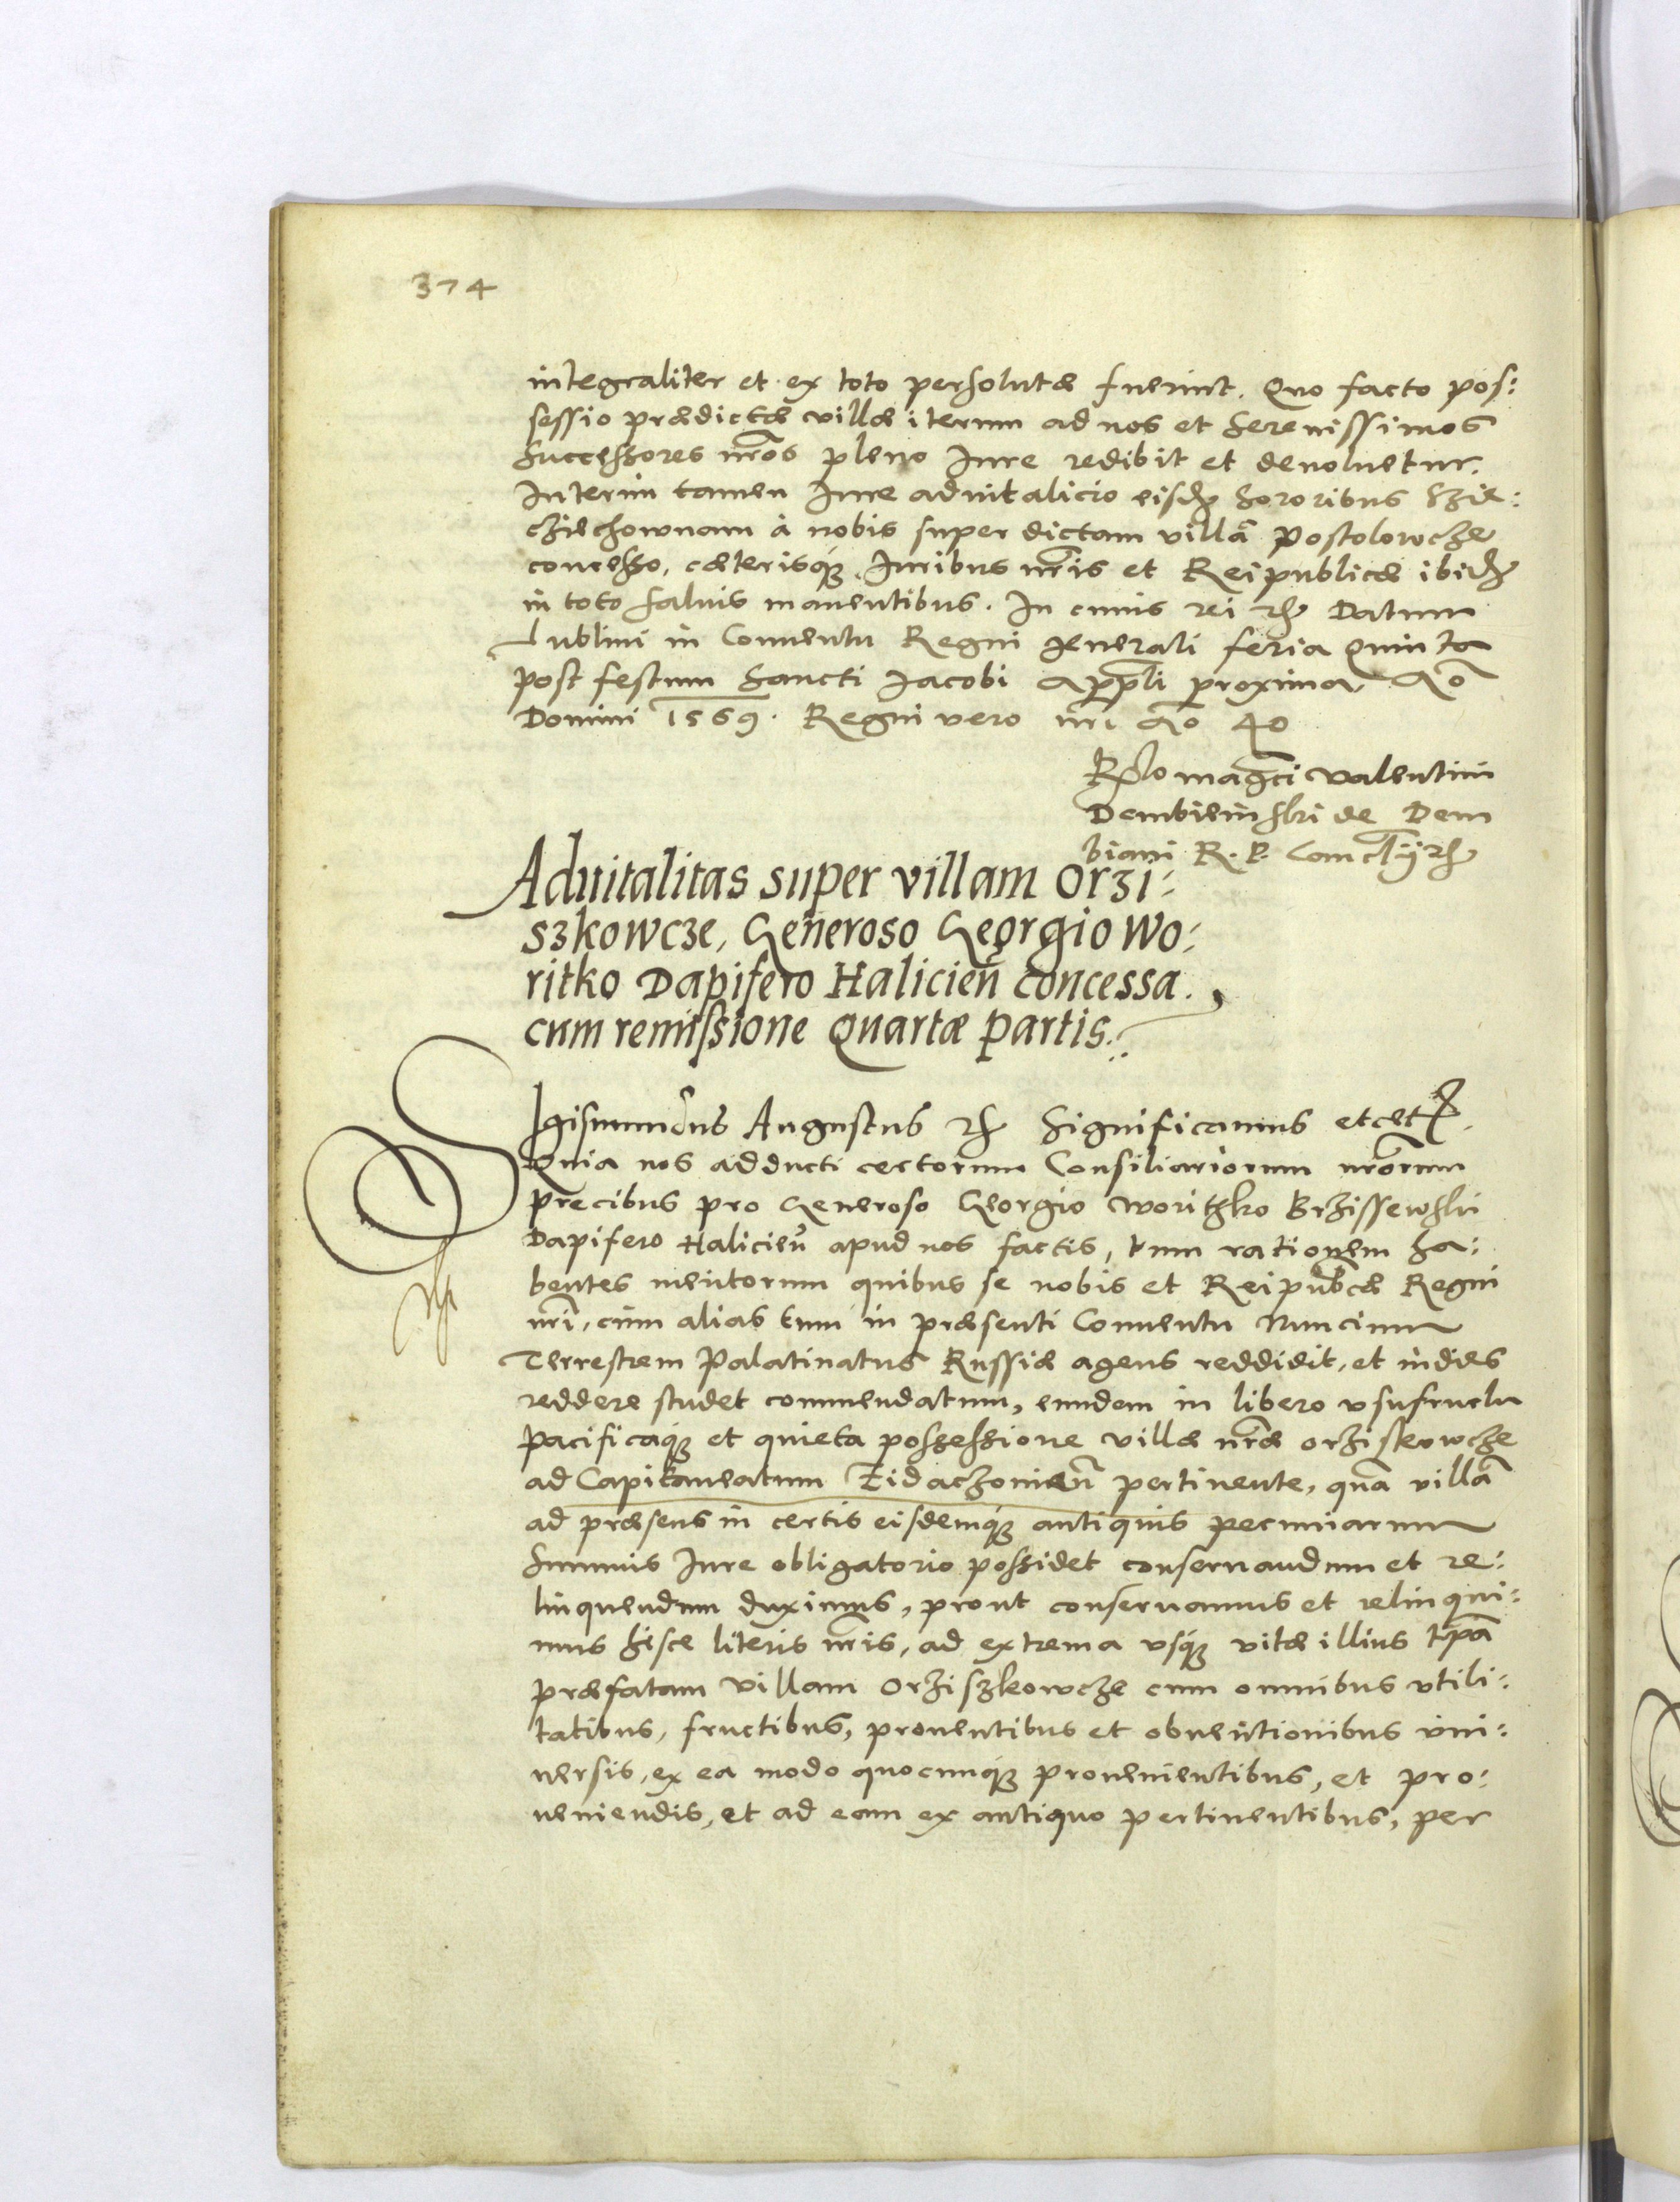 374
integraliter et ex toto persolutæ fuerint. Quo facto pos:
sessio prædictæ villæ iterum ad nos et Serenissimos
Successores nr̃os pleno Iure redibit et devoluetur.
Interim tamen Iure aduitalicio eisdẽ Sororibus
czilchownam à nobis super dictam villã Postolowcze
concesso, cæterisq́ꝫ Iuribus nr̃is et Reipublicæ ibidẽ
in toto saluis manentibus. In cuius rei etc Datum
Lublini in Conuentu Regni generali feria Quinta
post festum Sancti Iacobi App̃li proxima Aõ
Domini 1569. Regni vero nr̃i Aõ 40
R̃lo mag̃ci Valentini
Dembieinski de Dem
biani R. P. Canc etc
Aduitalitas super villam Orzi:
szkowcze, Generoso Georgio Wo:
ritko Dapifero Halicieñ concessa.
cum remissione Quartæ Partis.
Sigismundus Augustus etc Significamus etcæt.
Quia nos adducti certorum Consiliariorum nr̃orum
precibus pro Generoso Georgio Woritzko Brzissewski
Dapifero Halicieñ apud nos factis, tum rationem ha:
bentes meritorum quibus se nobis et Reipub̃cæ Regni
nr̃i, cùm alias tum in præsenti Conuentu Nuncium
Terrestrem Palatinatus Russiæ agens reddidit, et indies
reddere studet commendatum, eundem in libero vsufructu
pacificaq́ꝫ et quieta possessione villæ nr̃æ Orziskowcze
ad Capitaneatum Zidaczouieñ pertinente, quã villã
ad præsens in certis eisdemq́ꝫ antiquis pecuniarum
Summis Iure obligatorio possidet conseruandum et re:
linquendum duximus, prout conseruamus et relinqui:
mus hisce literis nr̃is, ad extrema vsq́ꝫ vitæ illius tp̃a
præfatam villam Orziszkowcze cum omnibus vtili:
tatibus, fructibus, prouentibus et obuentionibus vni:
uersis, ex ea modo quocunq́ꝫ prouenientibus, et pro:
ueniendis, et ad eam ex antiquo pertinentibus, per